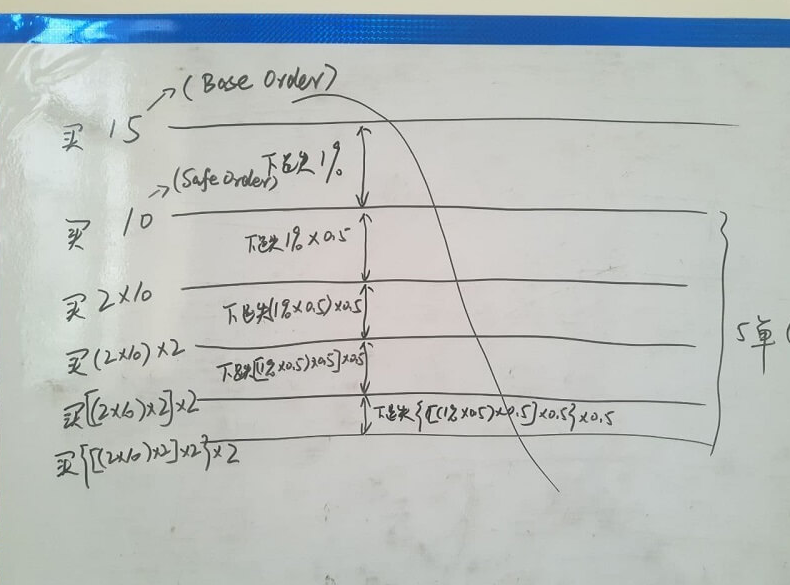 (Base Order)
买 15
下跌1%
(Safe Order)
买 10
下跌1%×0.5
买 2×10
下跌(1%×0.5)×0.5
买(2×10)×2
下跌[(1%×0.5)×0.5]×0.5
买[(2×10)×2]×2
下跌{[(1%×0.5)×0.5]×0.5}×0.5
买{[(2×10)×2]×2}×2
5单(